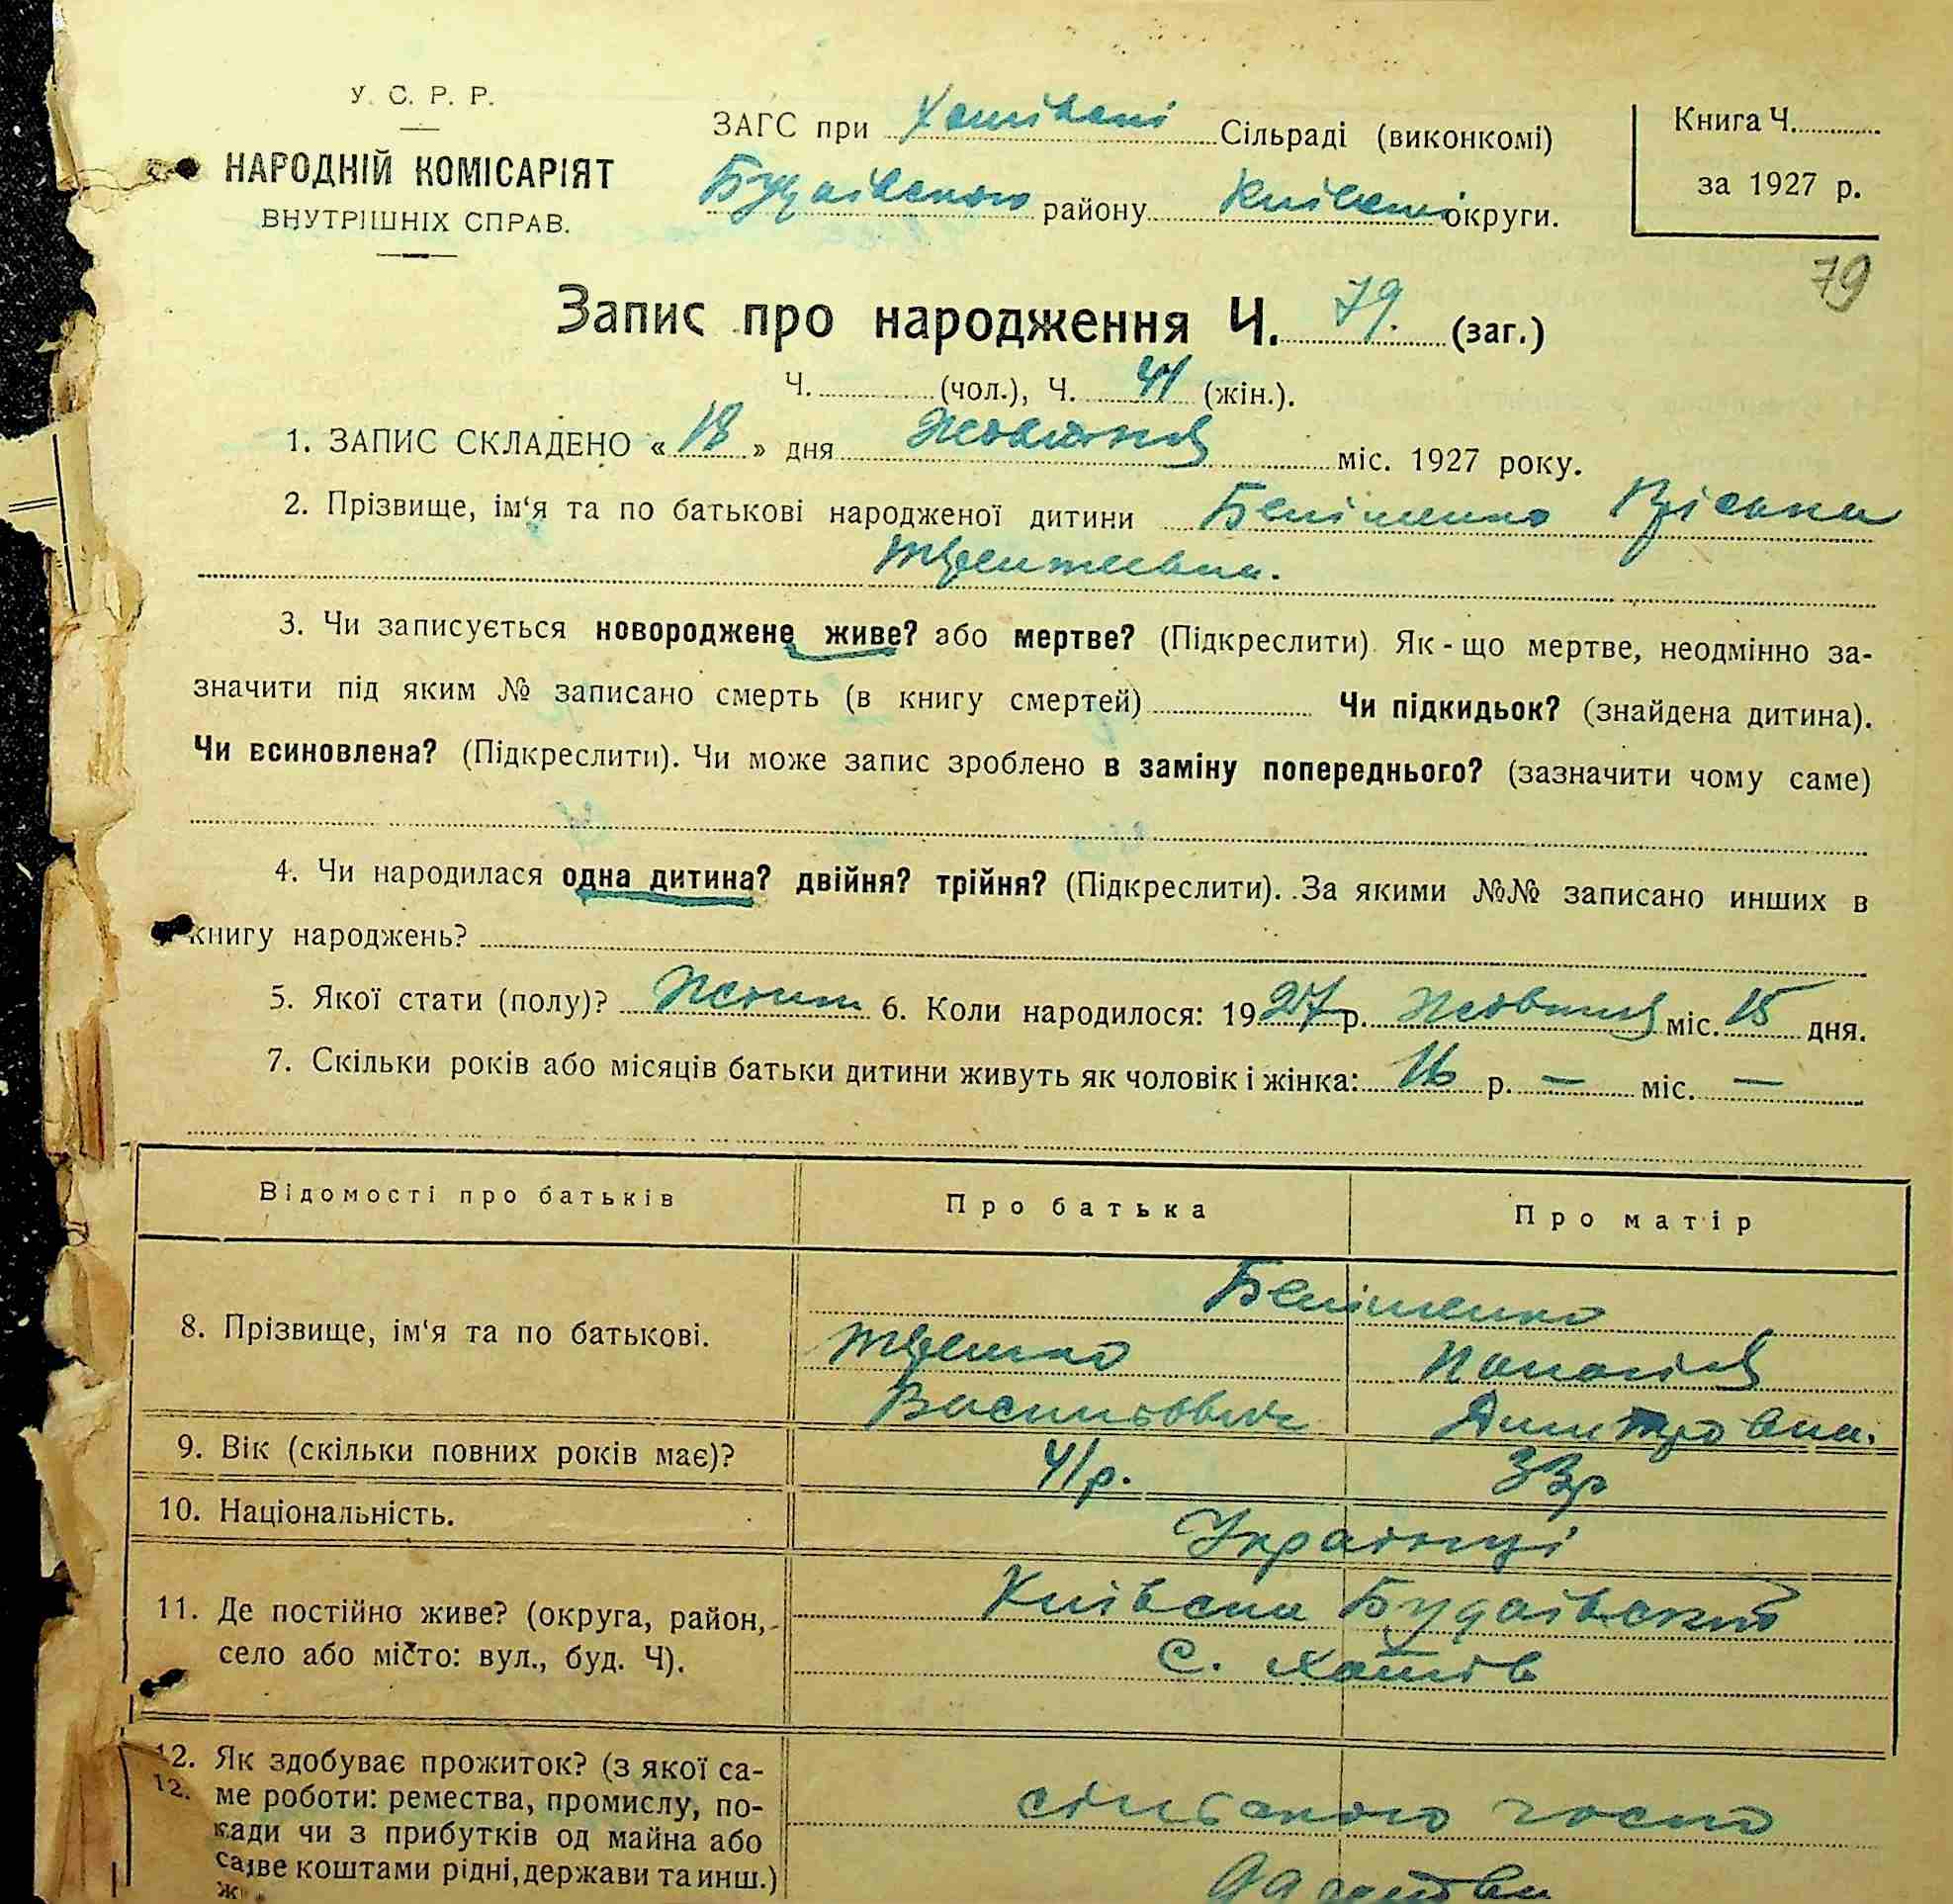 У. С. Р. Р.
НАРОДНІЙ КОМІСАРІЯТ
ВНУТРІШНІХ СПРАВ.
ЗАГС при Хотівські Сільраді (виконкомі)
Будаівського району Київської округи.
Книга Ч.
за 1927 р.
79
Запис про народження Ч. 79. (заг.)
Ч. (чол.), Ч. 41 (жін.).
1. ЗАПИС СКЛАДЕНО « 18 » дня Жовтня міс. 1927 року.
2. Прізвище, ім‘я та по батькові народженої дитини
3. Чи записується новороджене живе? або мертве? (Підкреслити). Як-що мертве, неодмінно за-
значити під яким № записано смерть (в книгу смертей) Чи підкидьок? (знайдена дитина).
Чи всиновлена? (Підкреслити). Чи може запис зроблено в заміну попереднього? (зазначити чому саме)
4. Чи народилася одна дитина? двійня? трійня? (Підкреслити). За якими №№ записано инших в
книгу народжень?
5. Якої стати (полу)? 6. Коли народилося: 1927 р. Жовтня міс. 15 дня.
7. Скільки років або місяців батьки дитини живуть як чоловік і жінка: 16 р. — міс. —
Відомості про батьків
Про батька
Про матір
8. Прізвище, ім‘я та по батькові.
Василович
Дмитровна.
9. Вік (скільки повних років має)?
41р.
33р
10. Національність.
Украінці
11. Де постійно живе? (округа, район,
село або місто: вул., буд. Ч).
Київська Будаівский
С. Хотів
12. Як здобуває прожиток? (з якої са-
12.
ме роботи: ремества, промислу, по-
сади чи з прибутків од майна або
живе коштами рідні, держави та инш.)
сільського госпо
дарства